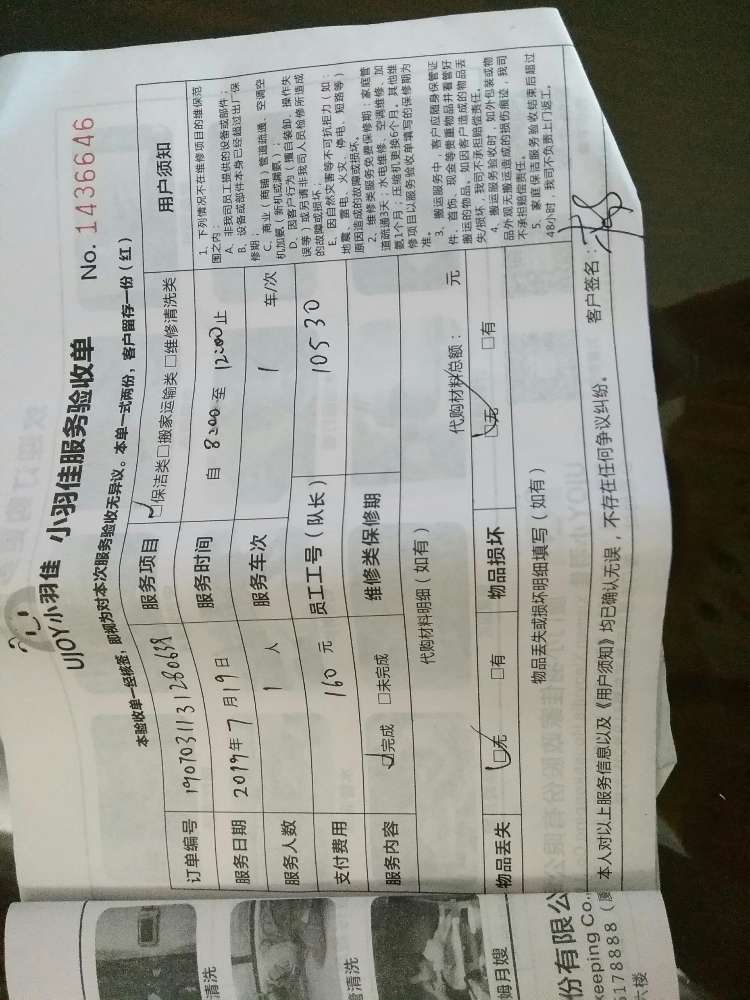 UJOY小羽佳 小羽佳服务验收单
No. 1436646
本验收单一经核签，即视为对本次服务验收无异议。本单一式两份，客户留存一份（红）
订单编号 1907031131280638 服务项目 ☑保洁类□搬家运输类 □维修清洗类
服务日期 2019年7月19日 服务时间 自 8:00 至 12:00止
服务人数 1 人 服务车次 1 车/次
支付费用 160 元 员工工号（队长） 10530
服务内容 ☑完成 □未完成 维修类保修期
代购材料明细（如有） 代购材料总额： 元
物品丢失 ☑无 □有 物品损坏 ☑无 □有
物品丢失或损坏明细填写（如有）
用户须知
1、下列情况不在维修项目的维保范
围之内：
A、非我司员工提供的设备或部件；
B、设备或部件本身已经超过出厂保
修期；
C、商业（商铺）管道疏通、空调空
机加氨（新机或漏氨）；
D、因客户行为（擅自装卸、操作失
误等）或另请非我司人员检修所造成
的故障或损坏；
E、因自然灾害等不可抗拒力（如：
地震、雷电、火灾、停电、短路等）
原因造成的故障或损坏。
2、维修类服务免费保修期：家庭管
道疏通3天；水电维修、空调维修、加
氨1个月；压缩机更换6个月。其他维
修项目以服务验收单填写的保修期为
准。
3、搬运服务中，客户应随身保管证
件、首饰、现金等贵重物品并看管好
搬运的物品，如因客户造成的物品丢
失/损坏，我司不承担赔偿责任。
4、搬运服务验收时，如外包装或物
品外观无搬运造成的损伤痕迹，我司
不承担赔偿责任。
5、家庭保洁服务验收结束后超过
48小时，我司不负责上门返工。
本人对以上服务信息以及《用户须知》均已确认无误，不存在任何争议纠纷。 客户签名：
清洗
管清洗
姆月嫂
份有限公
eeping Co.,
178888（厦
六楼